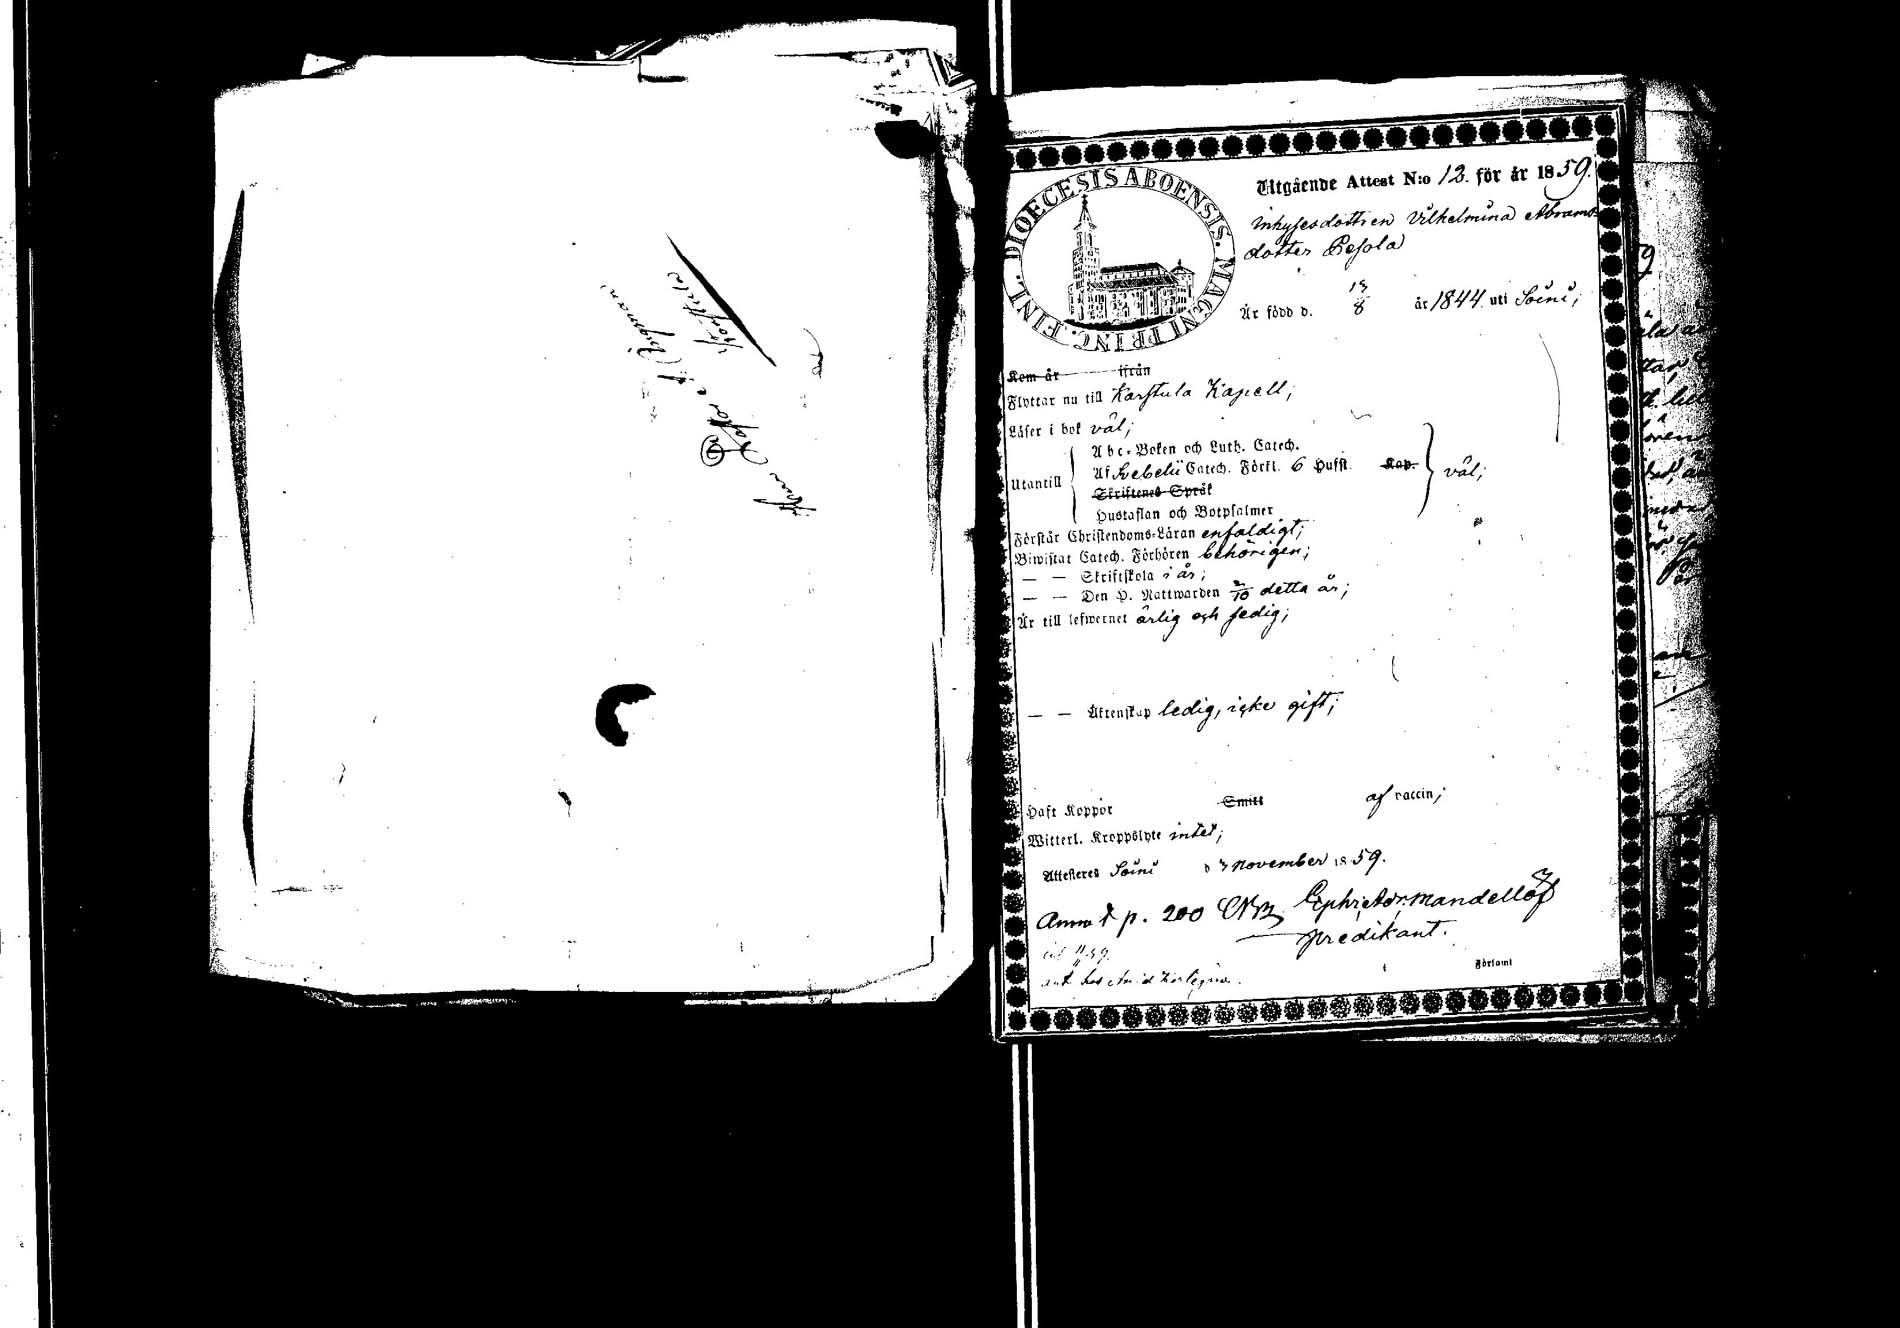 Karstula
DIOECESIS ABOENSIS. MAGNI PRINC. FINL.
Utgående Attest N:o 12. för år 1859.
Inhysesdottren Vilhelmina Abrams-
dotter Pesola
Är född d. 13/8 år 1844. uti Soini;
Kom år ifrån
Flyttar nu till Karstula Kapell;
Läser i bok väl;
Utantill
Abc-Boken och Luth. Catech.
Af Svebelii Catech. Förkl. 6 Hufst. Kap. väl;
Skriftenes Språk
Hustaflan och Botpsalmer
Förstår Christendoms-Läran enfaldigt;
Biwistat Catech. Förhören behörigen;
— — Skriftskola i år;
— — Den H. Nattwarden 2/10 detta år;
Är till lefwernet ärlig och sedig;
— — Äktenskap ledig, icke gift;
Haft Koppor Smitt af vaccin;
Witterl. Kroppslyte intet;
Attesteras Soini d 3 November 1859.
p. 200 Mandellöf
predikant.
Församl